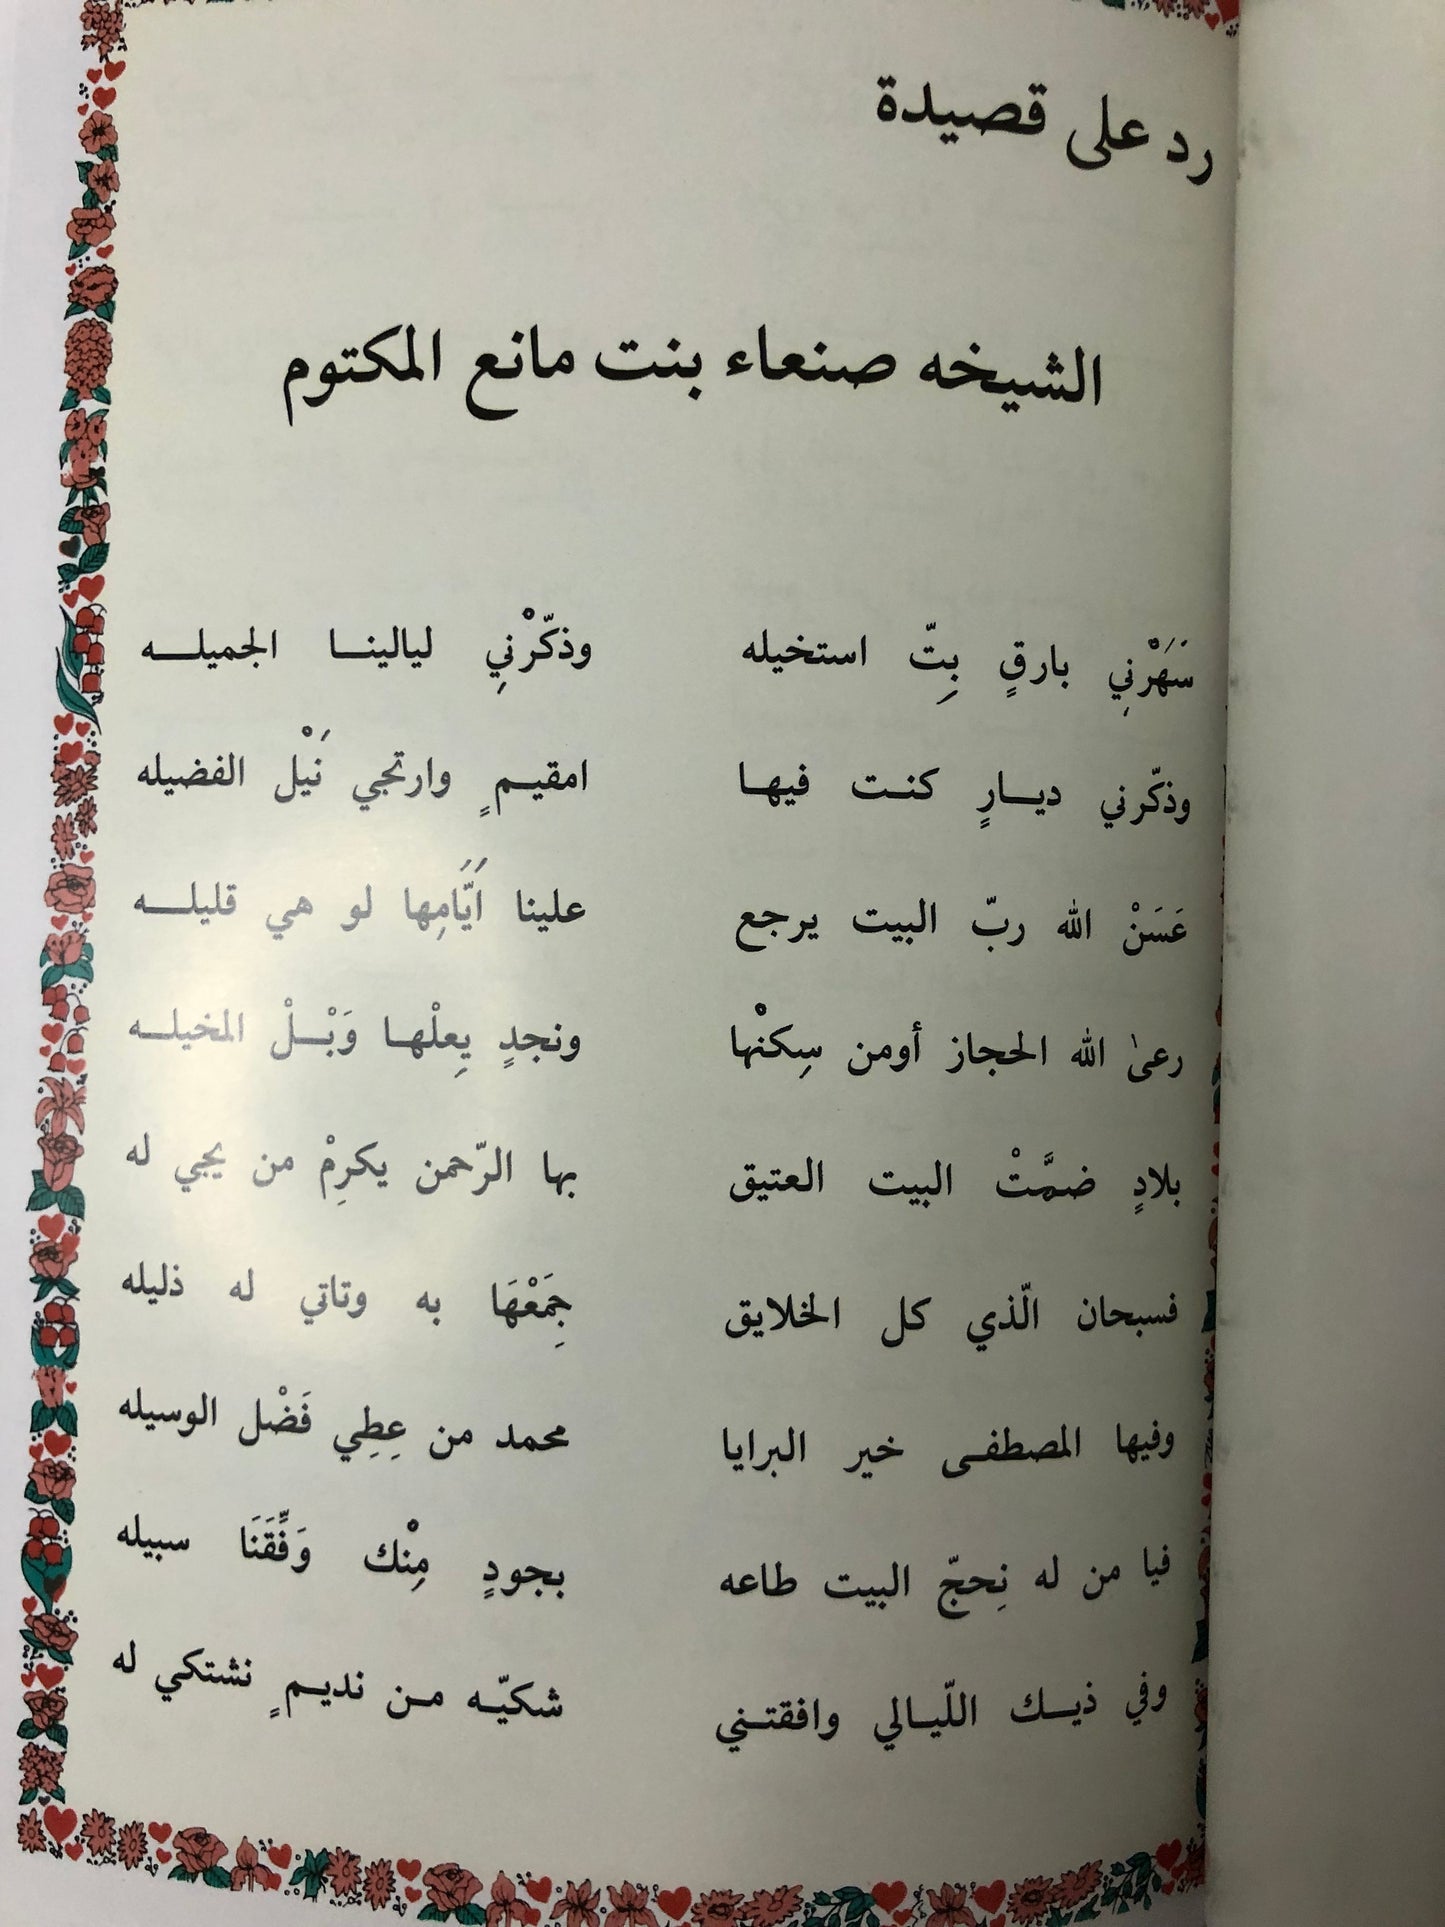 رد على قصيدة
الشيخه صنعاء بنت مانع المكتوم
سَهَرْنِي بارقٍ بِتّ استخيله وذكّرْنِي ليالينا الجميله
وذكّرني ديارٍ كنت فيها امقيمٍ وارتجي نَيْل الفضيله
عَسَنْ الله ربّ البيت يرجع علينا اَيَّامِها لو هي قليله
رعىٰ الله الحجاز أومن سِكنْها ونجدٍ يِعلْها وَبْلْ المخيله
بلادٍ ضمَّتْ البيت العتيق بها الرّحمن يكرِمْ من يجي له
فسبحان الّذي كل الخلايق جِمَعْهَا به وتاتي له ذليله
وفيها المصطفى خير البرايا محمد من عِطِي فَضْل الوسيله
فيا من له نِحجّ البيت طاعه بجودٍ مِنْك وَفِّقَنَا سبيله
وفي ذيك اللّيالي وافقتني شكيّه من نديمٍ نشتكي له